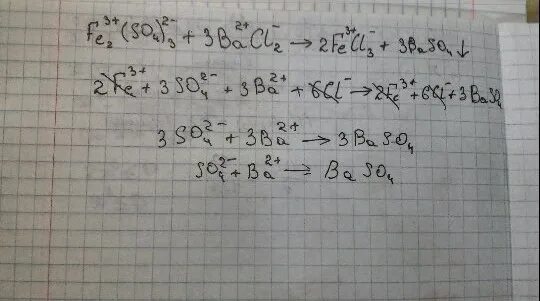 Fe₂³⁺(SO₄)₃²⁻ + 3Ba²⁺Cl₂⁻ → 2Fe³⁺Cl₃⁻ + 3BaSO₄↓
2Fe³⁺ + 3SO₄²⁻ + 3Ba²⁺ + 6Cl⁻ → 2Fe³⁺ + 6Cl⁻ + 3BaSO₄
3SO₄²⁻ + 3Ba²⁺ → 3BaSO₄
SO₄²⁻ + Ba²⁺ → BaSO₄